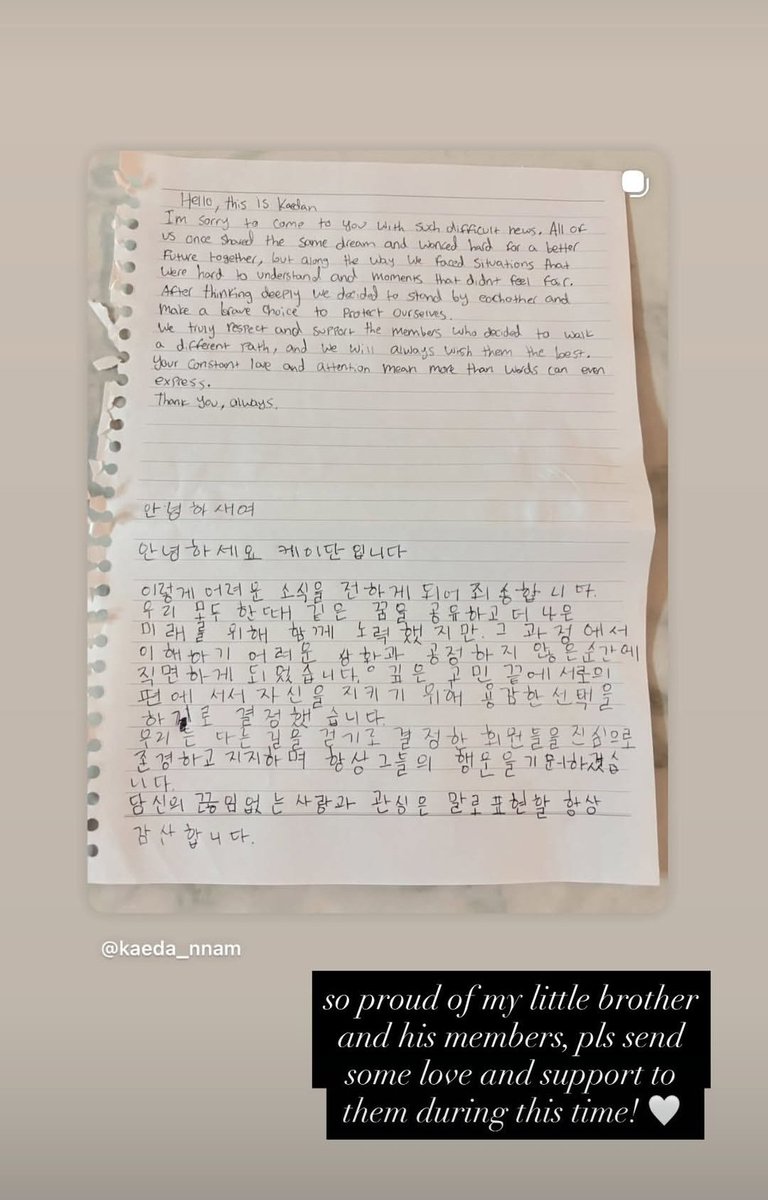 Hello, this is Kaedan
I'm sorry to come to you with such difficult news. All of
us once shared the same dream and worked hard for a better
future together, but along the way we faced situations that
were hard to understand and moments that didnt feel fair.
After thinking deeply we decided to stand by eachother and
make a brave choice to protect ourselves.
We truly respect and support the members who decided to walk
a different path, and we will always wish them the best.
Your constant love and attention mean more than words can even
express.
Thank you, always.
안녕하새여
안녕하세요 케이단입니다
이렇게 어려운 소식을 전하게 되어 죄송합니다.
우리 모두 한때 같은 꿈을 공유하고 더 나은
미래를 위해 함께 노력했지만. 그 과정에서
이해하기 어려운 상황과 공정하지 않은 순간에
직면하게 되었습니다. 깊은 고민 끝에 서로의
편에 서서 자신을 지키기 위해 용감한 선택을
하기로 결정했습니다.
우리는 다른 길을 걷기로 결정한 회원들을 진심으로
존경하고 지지하며 항상 그들의 행운을 기원하겠습
니다.
당신의 끊임없는 사랑과 관심은 말로 표현할 항상
감산합니다.
@kaeda_nnam
so proud of my little brother
and his members, pls send
some love and support to
them during this time! 🤍